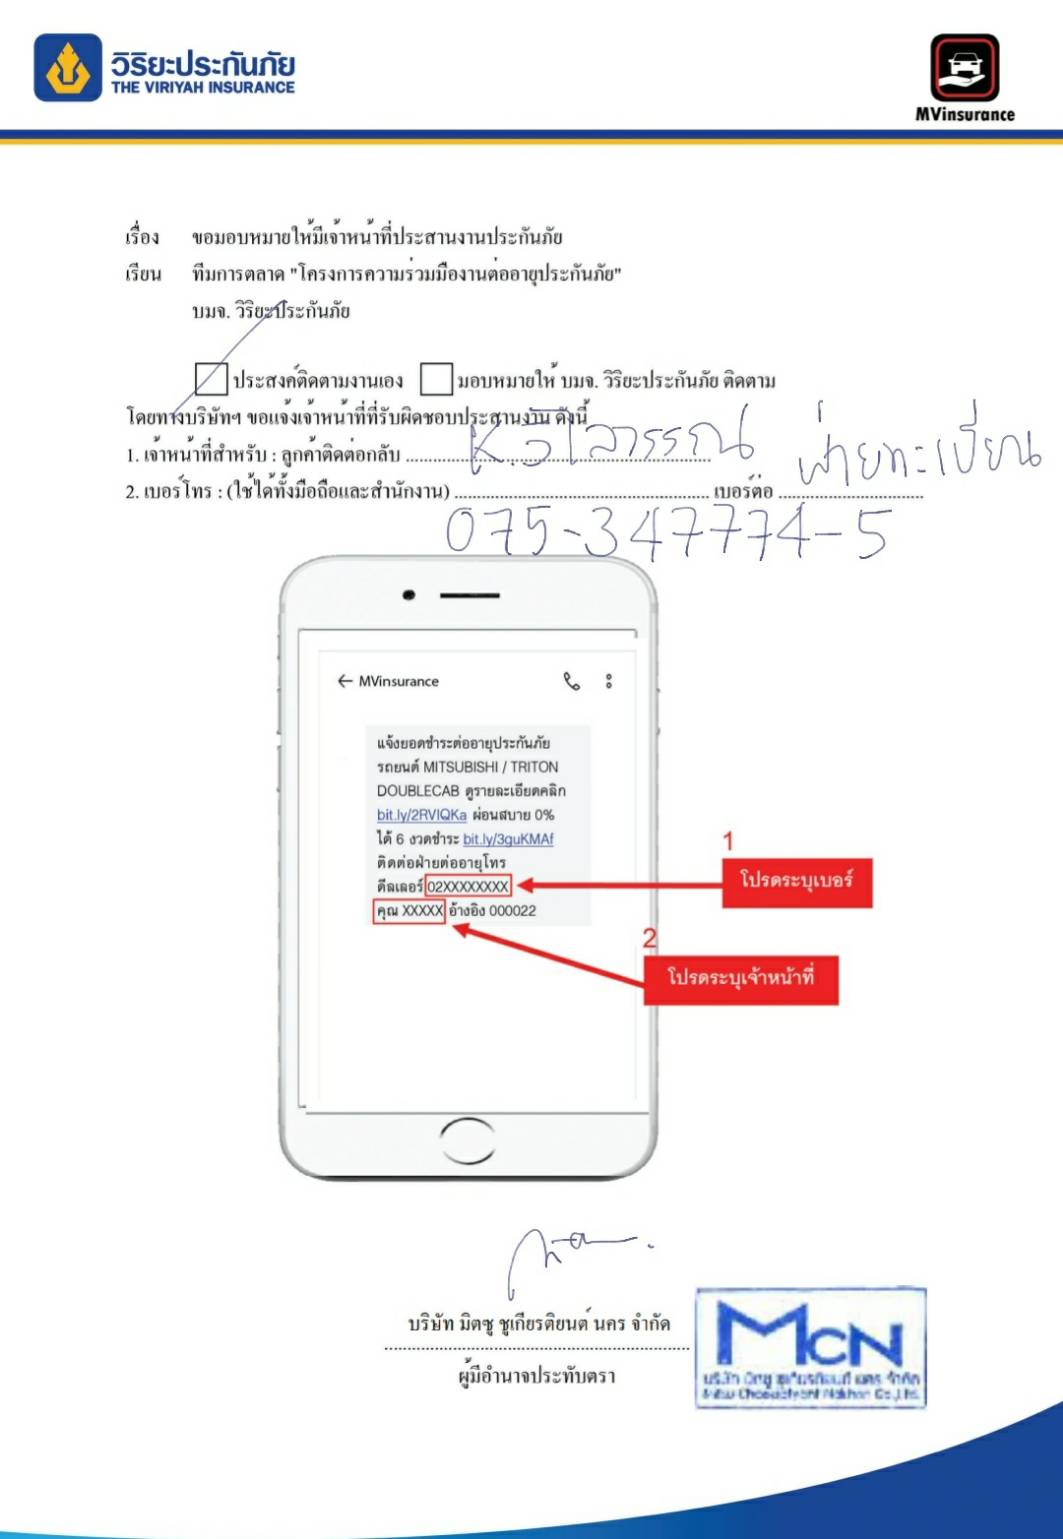 วิริยะประกันภัย
THE VIRIYAH INSURANCE
MVinsurance
เรื่อง ขอมอบหมายให้มีเจ้าหน้าที่ประสานงานประกันภัย
เรียน ทีมการตลาด "โครงการความร่วมมืองานต่ออายุประกันภัย"
บมจ. วิริยะประกันภัย
ประสงค์ติดตามงานเอง มอบหมายให้ บมจ. วิริยะประกันภัย ติดตาม
โดยทางบริษัทฯ ขอแจ้งเจ้าหน้าที่ที่รับผิดชอบประสานงาน ดังนี้
1. เจ้าหน้าที่สำหรับ : ลูกค้าติดต่อกลับ K.วิไลวรรณ ฝ่ายทะเบียน
2. เบอร์โทร : (ใช้ได้ทั้งมือถือและสำนักงาน) เบอร์ต่อ
075-347774-5
MVinsurance
แจ้งยอดชำระต่ออายุประกันภัย
รถยนต์ MITSUBISHI / TRITON
DOUBLECAB ดูรายละเอียดคลิก
bit.ly/2RVIQKa ผ่อนสบาย 0%
ได้ 6 งวดชำระ bit.ly/3guKMAf
ติดต่อฝ่ายต่ออายุโทร
ดีลเลอร์ 02XXXXXXXX
คุณ XXXXX อ้างอิง 000022
1
โปรดระบุเบอร์
2
โปรดระบุเจ้าหน้าที่
บริษัท มิตซู ชูเกียรติยนต์ นคร จำกัด
ผู้มีอำนาจประทับตรา
MCN
บริษัท มิตซู ชูเกียรติยนต์ นคร จำกัด